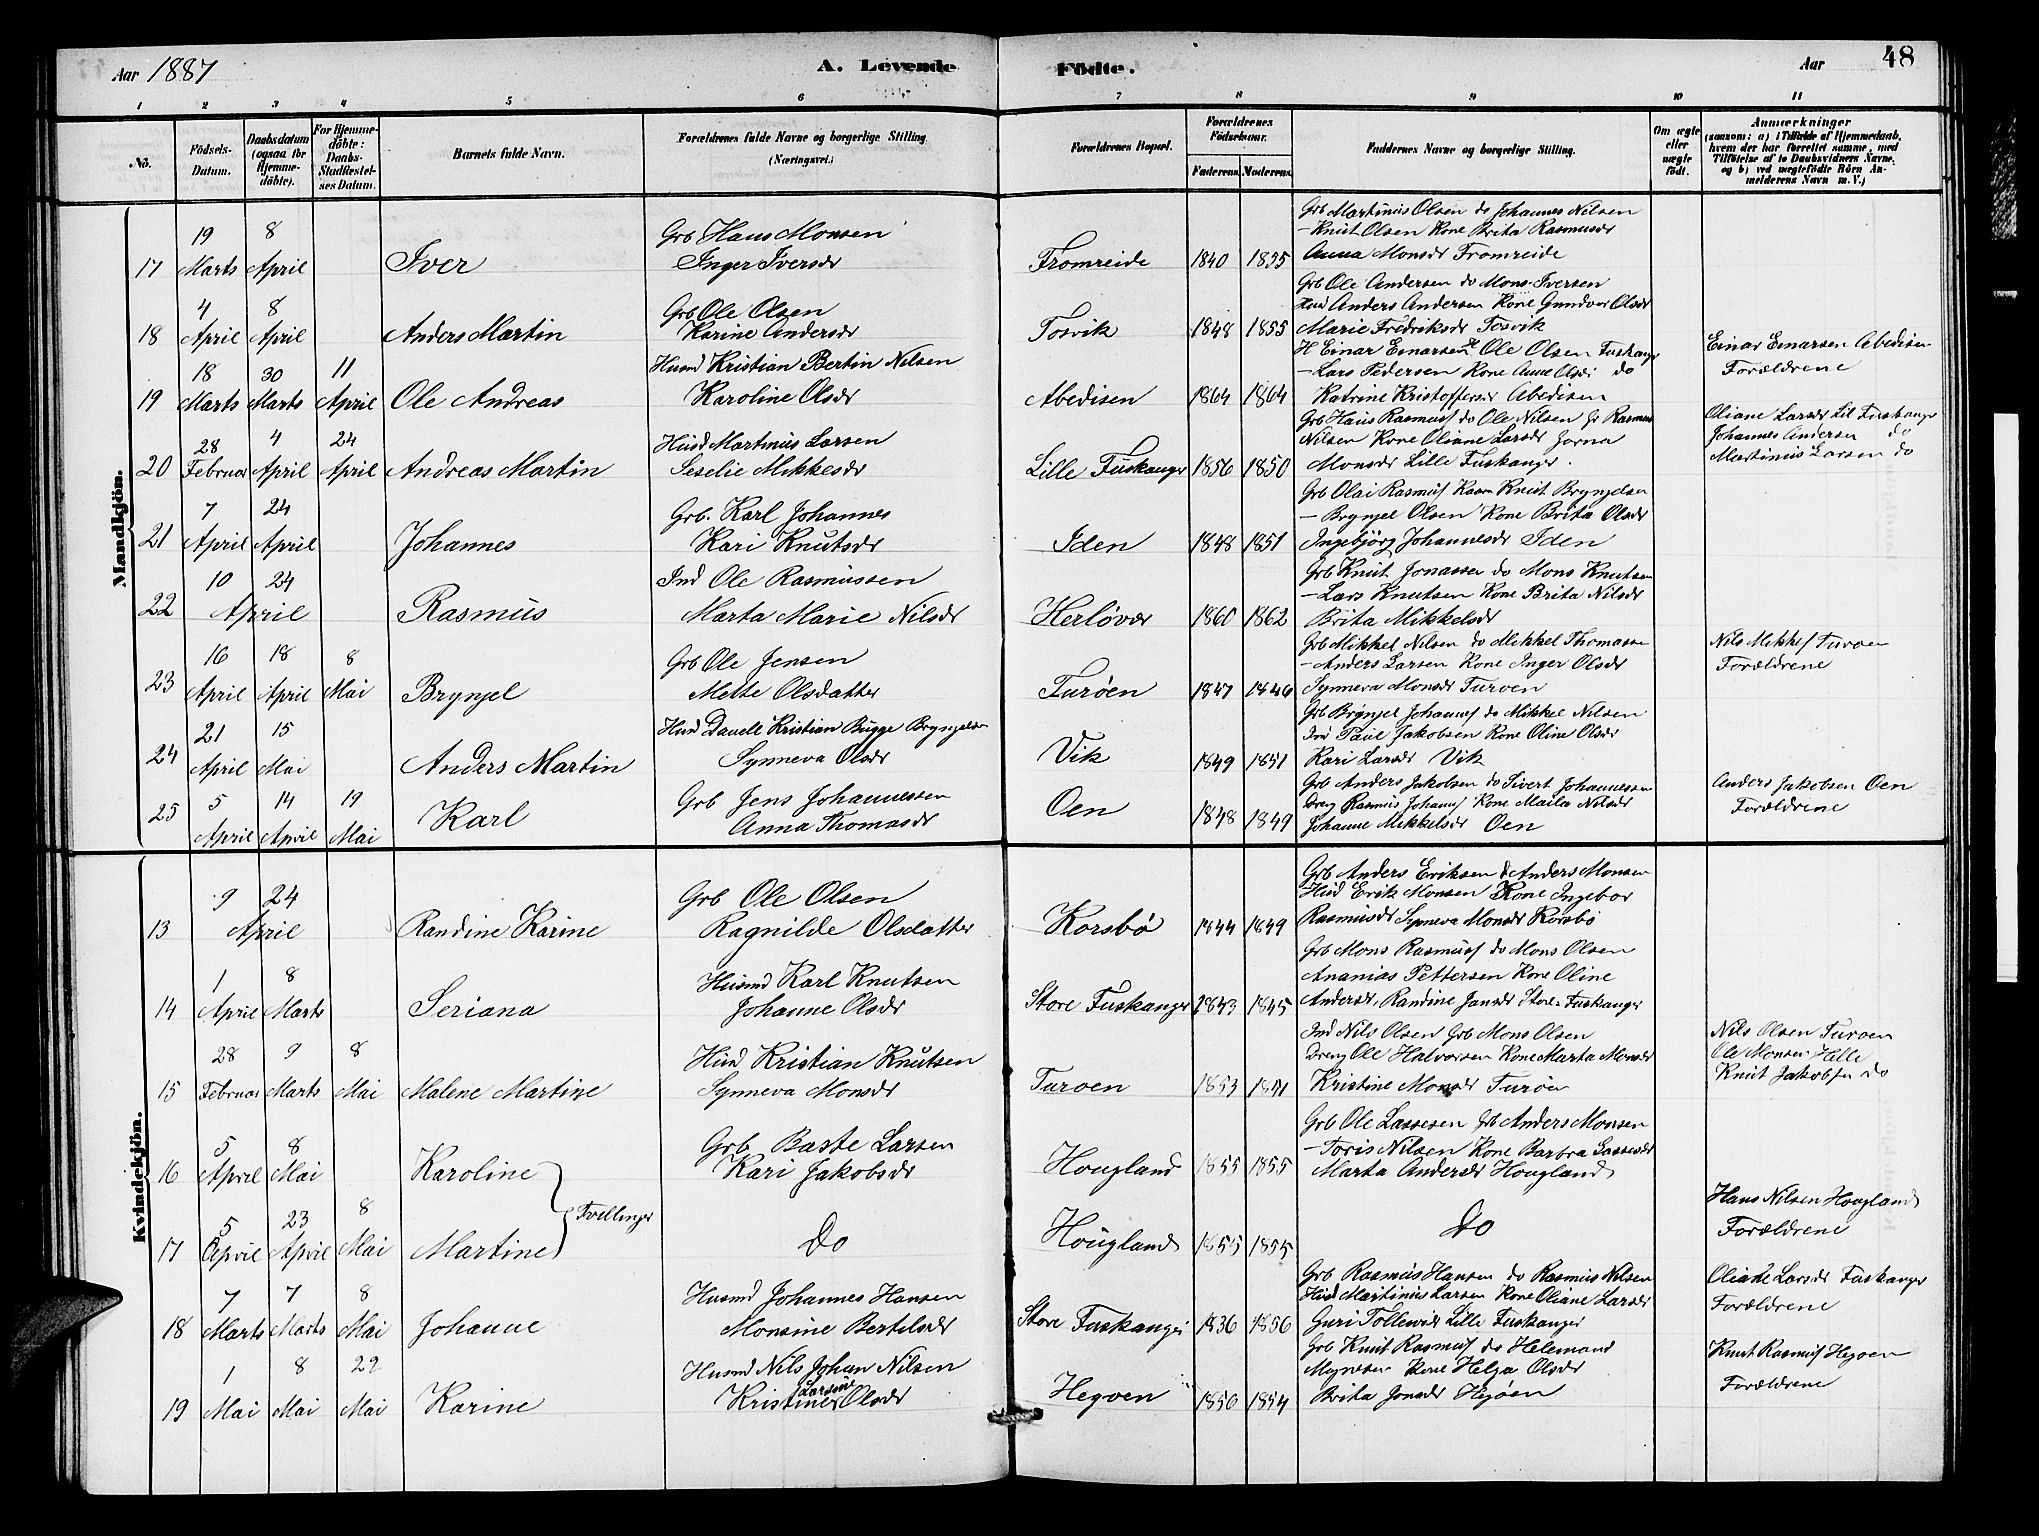 Aar 1887 A. Levende Födte. Aar 48
1 2 3 4 5 6 7 8 9 10 11
No. Födsels-Datum. Daabsdatum (ogsaa for Hjemme-döbte). For Hjemme-döbte: Daabs-Stadfæstel-ses Datum. Barnets fulde Navn. Forældrenes fulde Navne og borgerlige Stilling. (Næringsvei.) Forældrenes Bopæl. Forældrenes Födselsaar. Faderens. Moderens. Faddernes Navne og borgerlige Stilling. Om ægte eller uægte födt. Anmærkninger (saasom: a) i Tilfælde af Hjemmedaab, hvem der har forrettet samme, med Tilföielse af to Daabsvidners Navne, og b) ved uægtefödte Börn An-melderens Navn m. V.)
Mandkjön.
19 8 Grb Hans Monsen Grb Martinus Olsen do Johannes Nilsen
— Knut Olsen Kone Brita Rasmusdr
17 Marts April Iver Inger Iversdr Fromreide 1840 1855 Anna Monsdr Fromreide
4 8 Grb Ole Olsen Grb Ole Andersen do Mons Iversen
Husd Anders Andersen Kone Gundvor Olsdr
18 April April Anders Martin Karine Andersdr Tosvik 1848 1855 Marie Fredriksdr Tosvik
18 30 11 Husmd Kristian Bertin Nilsen H Einar Einarsen Ole Olsen Fuskanger Einar Einarsen Abedisen
— Lars Pedersen Kone Anne Olsdr do Forældrene
19 Marts Marts April Ole Andreas Karoline Olsdr Abedisen 1864 1864 Katrine Kristoffersdr Abedisen
28 4 24 Husd Martinus Larsen Grb Hans Rasmusf do Ole Nilsen Rasmus Oliane Larsdr Lil Fuskanger
Nilsen Kone Oliane Larsdr Johannes Andersen do
20 Februar April April Andreas Martin Seselie Mikkelsdr Lille Fuskanger 1856 1850 Monsdr Lille Fuskanger. Martinus Larsen do
7 24 Grb. Karl Johannes Grb Olai Rasmusf Knut Brynjelsen
— Brynjel Olsen Kone Brita Olsdr
21 April April Johannes Kari Knutsdr Iden 1848 1851 Ingebjörg Johannesdr Iden
10 24 Ind Ole Rasmussen Grb Knut Jonassen do Mons Knutsen
— Lars Knutsen Kone Brita Nilsdr
22 April Rasmus Marta Marie Nilsdr Herløvær 1860 1862 Brita Mikkelsdr
16 18 8 Grb Ole Jensen Grb Mikkel Nilsen do Mikkel Thomassen Nils Mikkelsf Turoen
— Anders Larsen Kone Inger Olsdr Forældrene
23 April April Mai Brynjel Mette Olsdatter Turøen 1847 1846 Synneva Monsdr Turoen
21 15 Husd Davell Kristian Bugge Brynjelsen Grb Brynjel Johannesf do Mikkel Nilsen
Ind Paul Jakobsen Kone Oline Olsdr
24 April Mai Anders Martin Synneva Olsdr Vik 1849 1851 Kari Larsdr Vik
5 14 19 Grb Jens Johannessen Grb Anders Jakobsen do Sivert Johannessen Anders Jakobsen Oen
Dreng Rasmus Johannesf Kone Maila Nilsdr Forældrene
25 April April Mai Karl Anna Thomasdr Oen 1848 1849 Johanne Mikkelsdr Oen
Kvindekjön.
9 24 Grb Ole Olsen Grb Anders Eriksen do Anders Monsen
Husd Erik Monsen Kone Ingebor
13 April Randine Karine Ragnilde Olsdatter Korsbø 1844 1849 Rasmusdr Synneva Monsdr Korsbø
1 8 Husmd Karl Knutsen Grb Mons Rasmusf do Mons Olsen
Ananias Pettersen Kone Oline
14 April Marts Seriana Johanne Olsdr Store Fuskanger 1843 1845 Andersdr, Randine Jansdr Store Fuskanger
28 9 8 Husd Kristian Knutsen Ind Nils Olsen Grb Mons Olsen Nils Olsen Turoen
Dreng Ole Halvorsen Kone Marta Monsdr Ole Monsen Hille
15 Februar Marts Mai Malene Martine Synneva Monsdr Turoen 1853 1841 Kristine Monsdr Turøen Knut Jakobsen do
5 8 Grb Baste Larsen Grb Ole Lassesen Grb Anders Monsen
— Toris Nilsen Kone Barbra Lassesdr
16 April Mai Karoline Kari Jakobsdr Hougland 1855 1855 Marta Andersdr Hougland
Tvillinger
5 23 8 Do Hougland 1855 1855 Do Hans Nilsen Hougland
17 April April Mai Martine Forældrene
7 7 8 Husmd Johannes Hansen Grb Rasmus Hansen do Rasmus Nilsen Oliane Larsdr Fuskanger
Husd Martinus Larsen Kone Oliane Larsdr Forældrene
18 Marts Marts Mai Johanne Monsine Bertelsdr Store Fuskanger 1836 1856 Guri Tollevsdr Lille Fuskanger
1 8 22 Husmd Nils Johan Nilsen Grb Knut Rasmusf do Helemand Knut Rasmusf Hegoen
Larsine Mognesen Kone Helga Olsdr Forældrene
19 Mai Mai Mai Karine Kristine Olsdr Hegoen 1856 1854 Brita Jonsdr Hegøen